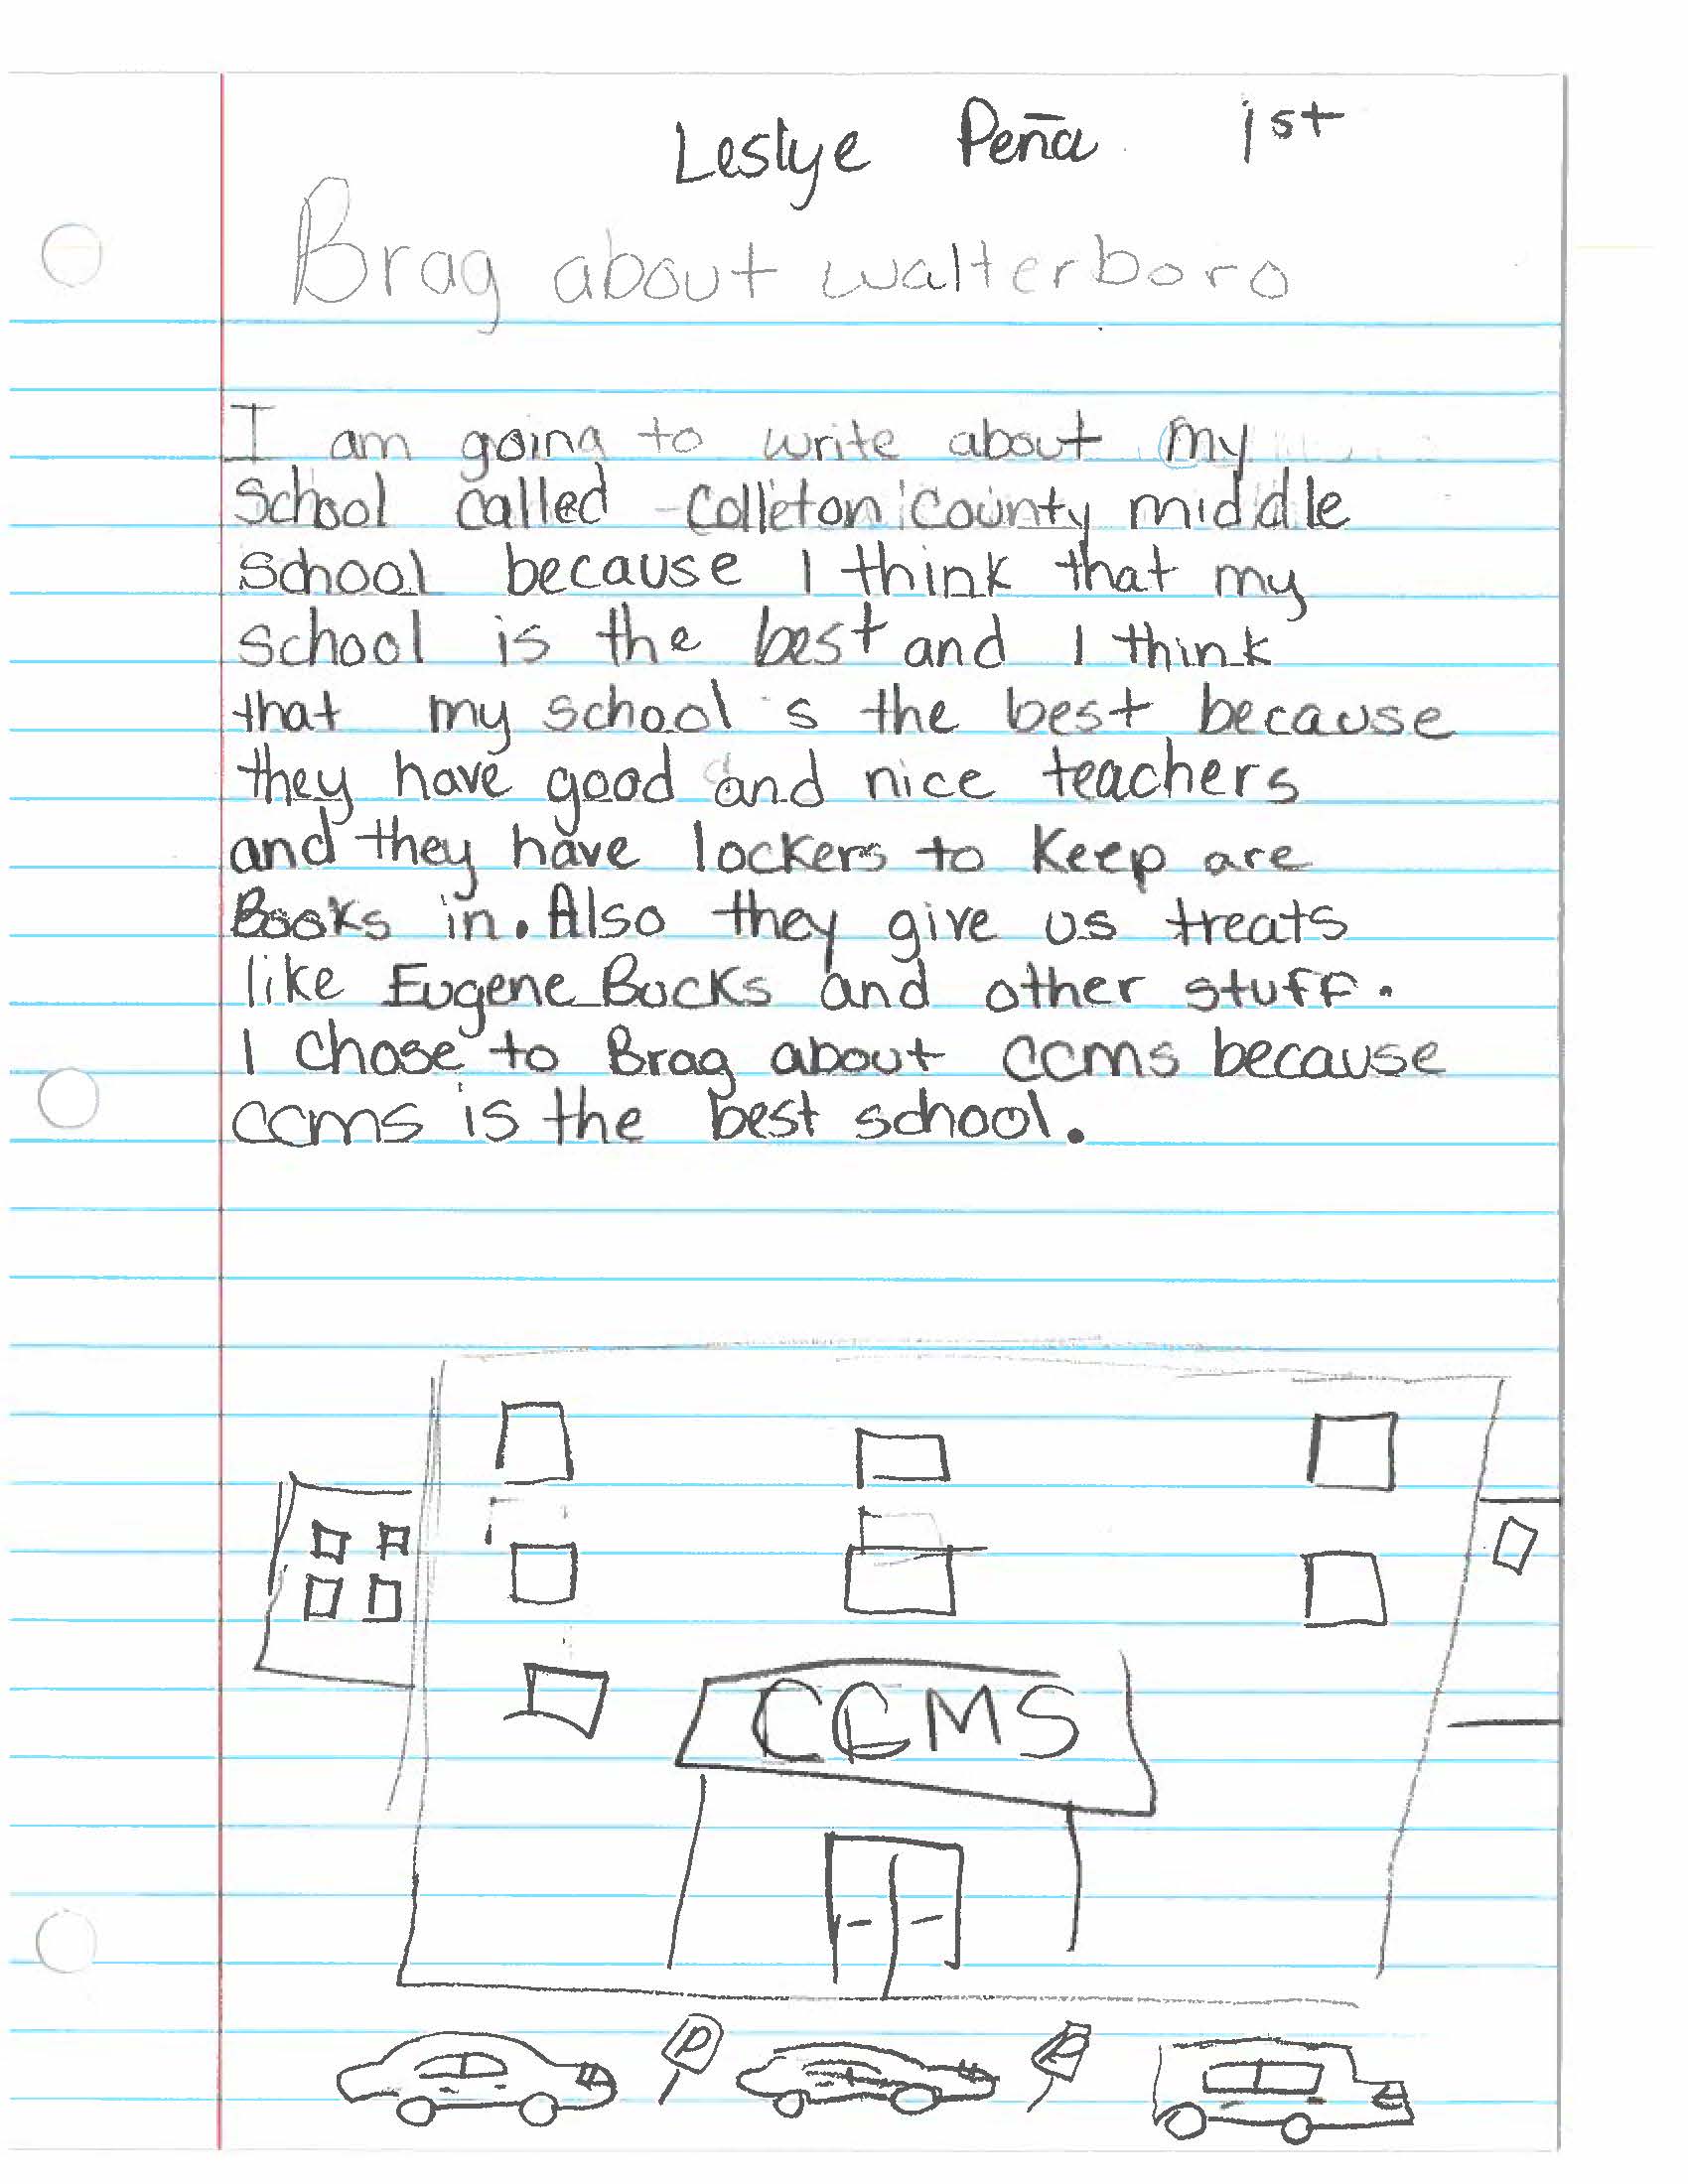 Leslye Peña 1st
Brag about walterboro
I am going to write about my
School called Colleton County middle
School because I think that my
school is the best and I think
that my school s the best because
they have good and nice teachers
and they have lockers to Keep are
Books in. Also they give us treats
like Eugene Bucks and other stuff.
I Chose to Brag about ccms because
ccms is the best school.
CCMS
P